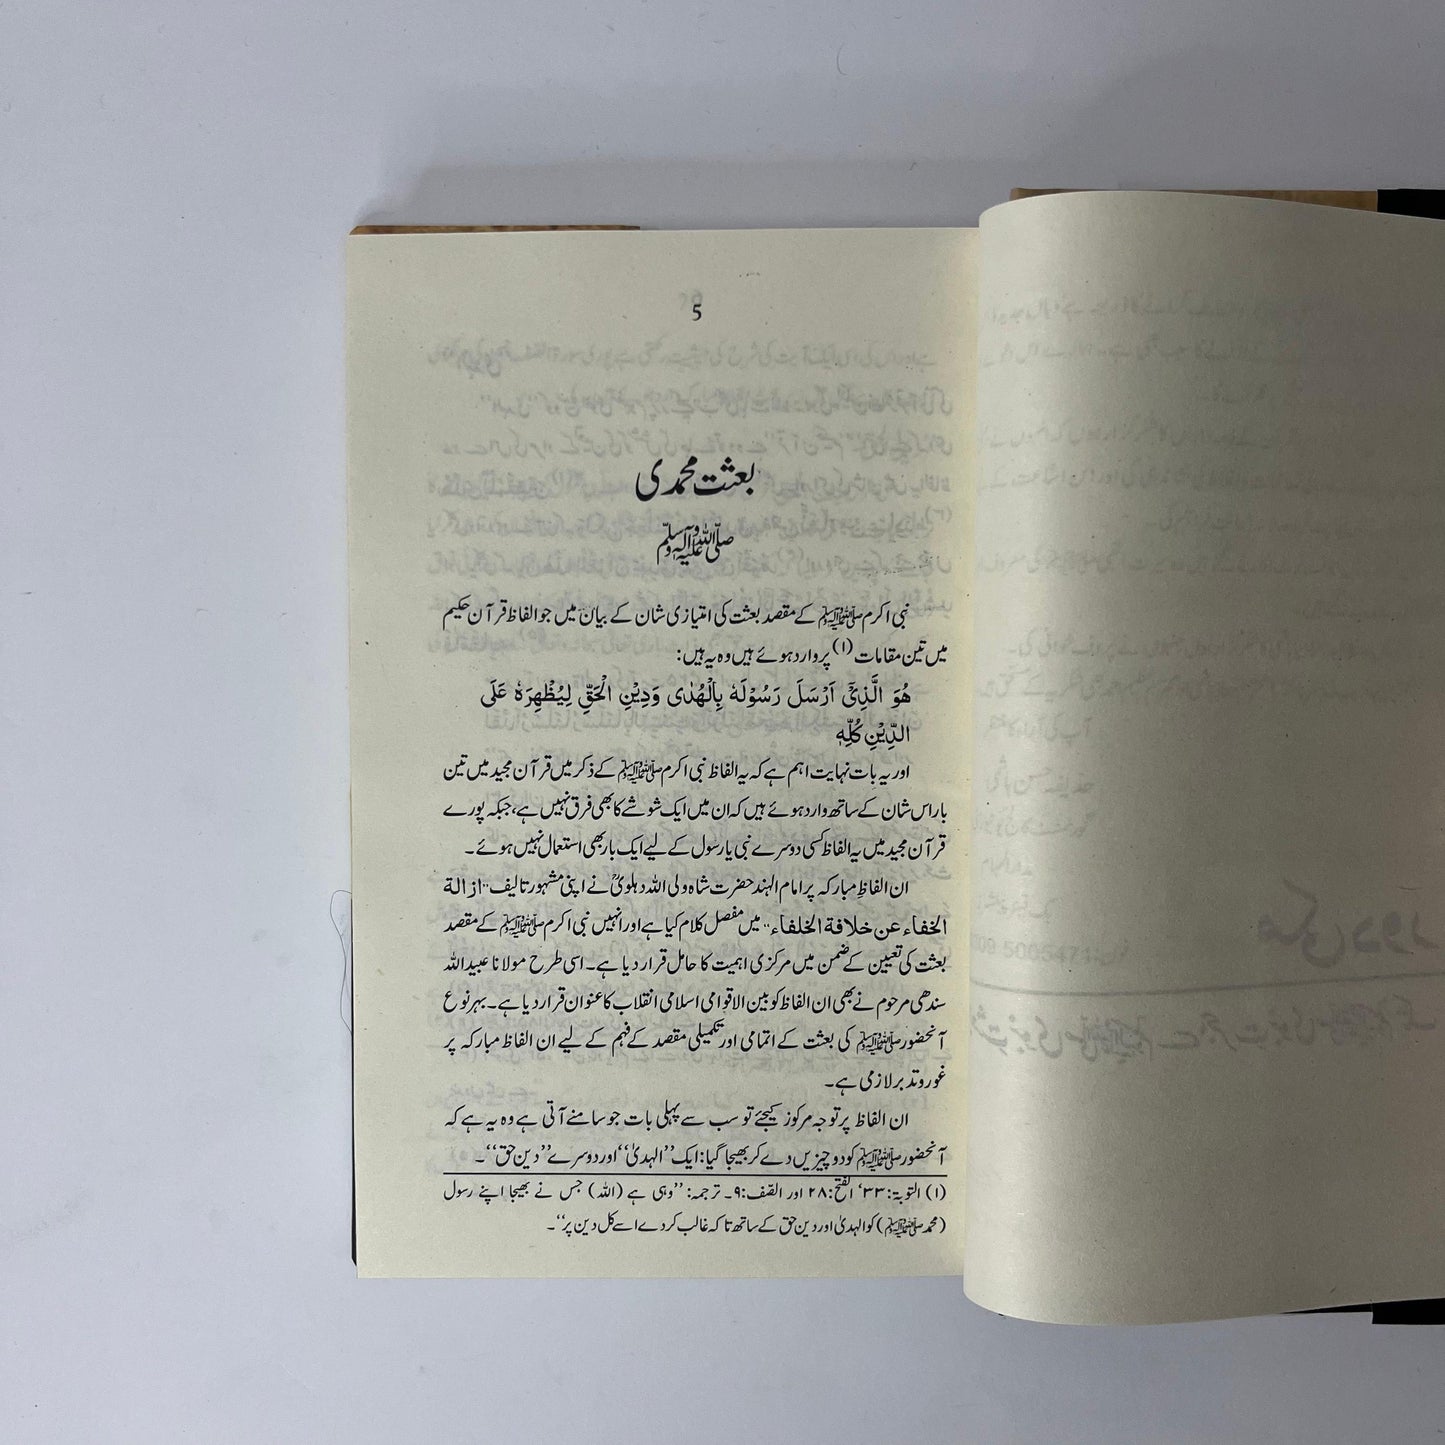 5
بعثت محمدی
صلی اللہ علیہ وآلہ وسلم
نبی اکرم ﷺ کے مقصد بعثت کی امتیازی شان کے بیان میں جو الفاظ قرآن حکیم
میں تین مقامات (۱) پر وارد ہوئے ہیں وہ یہ ہیں:
هُوَ الَّذِیْٓ اَرْسَلَ رَسُوْلَهٗ بِالْهُدٰی وَدِیْنِ الْحَقِّ لِیُظْهِرَهٗ عَلَی
الدِّیْنِ كُلِّهٖ
اور یہ بات نہایت اہم ہے کہ یہ الفاظ نبی اکرم ﷺ کے ذکر میں قرآن مجید میں تین
بار اس شان کے ساتھ وارد ہوئے ہیں کہ ان میں ایک شوشے کا بھی فرق نہیں ہے، جبکہ پورے
قرآن مجید میں یہ الفاظ کسی دوسرے نبی یا رسول کے لیے ایک بار بھی استعمال نہیں ہوئے۔
ان الفاظِ مبارکہ پر امام الہند حضرت شاہ ولی اللہ دہلویؒ نے اپنی مشہور تالیف ”ازالة
الخفاء عن خلافة الخلفاء“ میں مفصل کلام کیا ہے اور انہیں نبی اکرم ﷺ کے مقصد
بعثت کی تعیین کے ضمن میں مرکزی اہمیت کا حامل قرار دیا ہے۔ اسی طرح مولانا عبید اللہ
سندھی مرحوم نے بھی ان الفاظ کو بین الاقوامی اسلامی انقلاب کا عنوان قرار دیا ہے۔ بہر نوع
آنحضور ﷺ کی بعثت کے اتمامی اور تکمیلی مقصد کے فہم کے لیے ان الفاظ مبارکہ پر
غور و تدبر لازمی ہے۔
ان الفاظ پر توجہ مرکوز کیجئے تو سب سے پہلی بات جو سامنے آتی ہے وہ یہ ہے کہ
آنحضور ﷺ کو دو چیزیں دے کر بھیجا گیا: ایک ”الہدیٰ“ اور دوسرے ”دین حق“۔
(۱) التوبة: ۳۳‘ الفتح: ۲۸ اور الصّف: ۹۔ ترجمہ: ”وہی ہے (اللہ) جس نے بھیجا اپنے رسول
(محمد ﷺ) کو الہدیٰ اور دین حق کے ساتھ تاکہ غالب کر دے اسے کل دین پر“۔